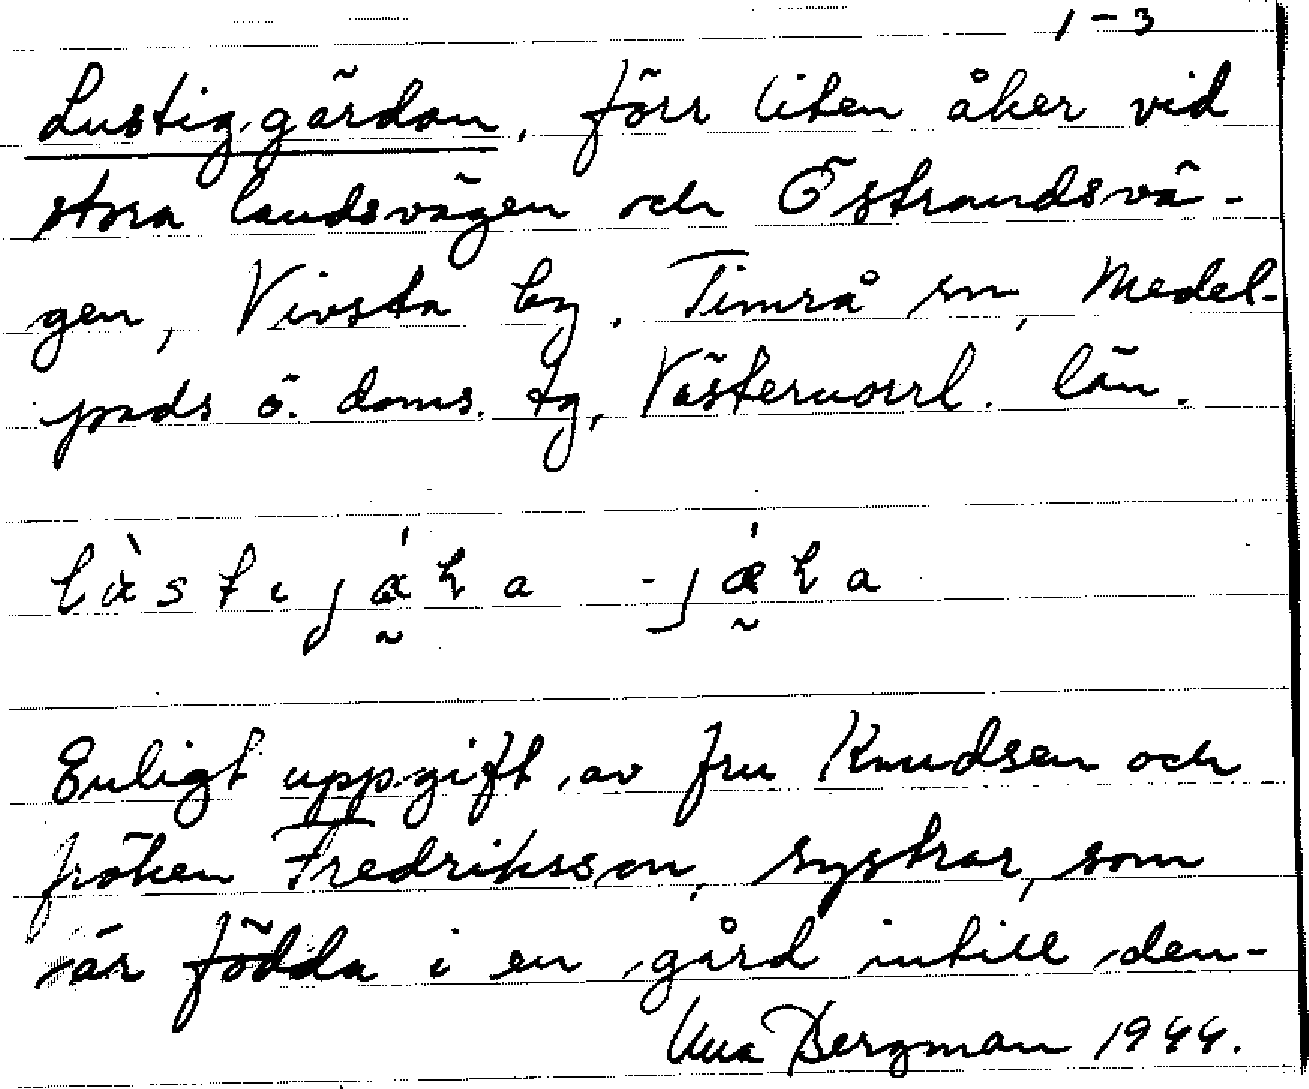 1-3
Lustiggärdan, förr liten åker vid
stora landsvägen och Östrandsvä-
gen, Vivsta by. Timrå sn, Medel-
pads ö. doms. tg, Västernorrl. län.
Enligt uppgift av fru Knudsen och
fröken Fredriksson, systrar, som
är födda i en gård intill den-
Bergman 1944.